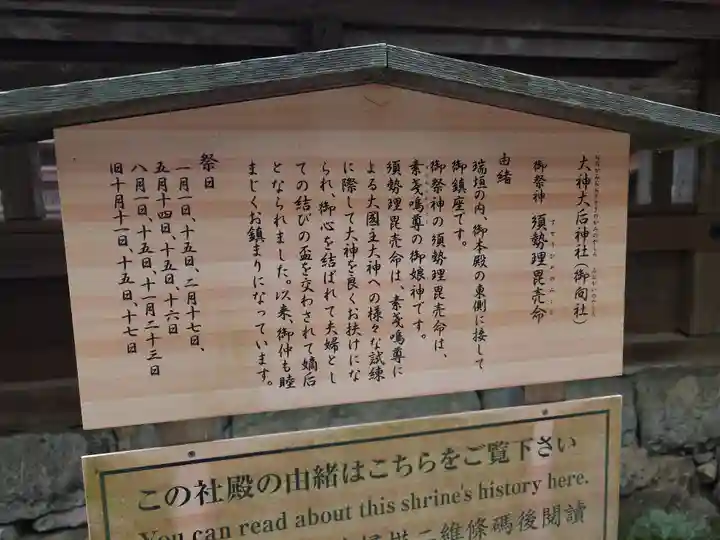 大神大后神社(御向社)
御祭神 須勢理毘売命
由緒
瑞垣の内、御本殿の東側に接して
御鎮座です。
御祭神の須勢理毘売命は、
素戔嗚尊の御娘神です。
須勢理毘売命は、素戔嗚尊に
よる大國主大神への様々な試練
に際して大神を良くお扶けにな
られ、御心を結ばれて夫婦とし
ての結びの盃を交わされて嫡后
となられました。以来、御仲も睦
まじくお鎮まりになっています。
祭日
一月一日、十五日、二月十七日、
五月十四日、十五日、十六日
八月一日、十五日、十一月二十三日
旧十月十一日、十五日、十七日
この社殿の由緒はこちらをご覧下さい
You can read about this shrine's history here.
二維條碼後閲讀